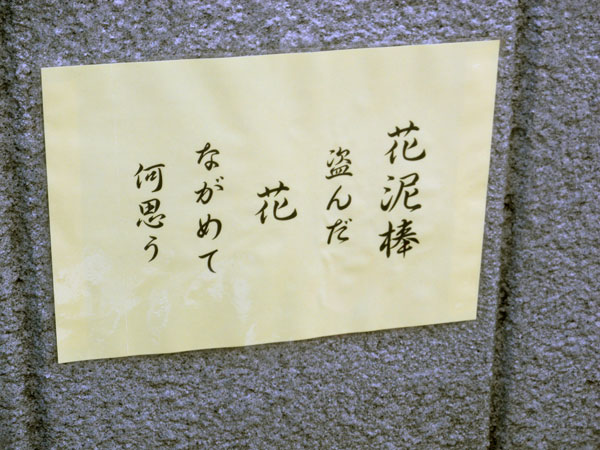 花泥棒
盗んだ
花
ながめて
何思う